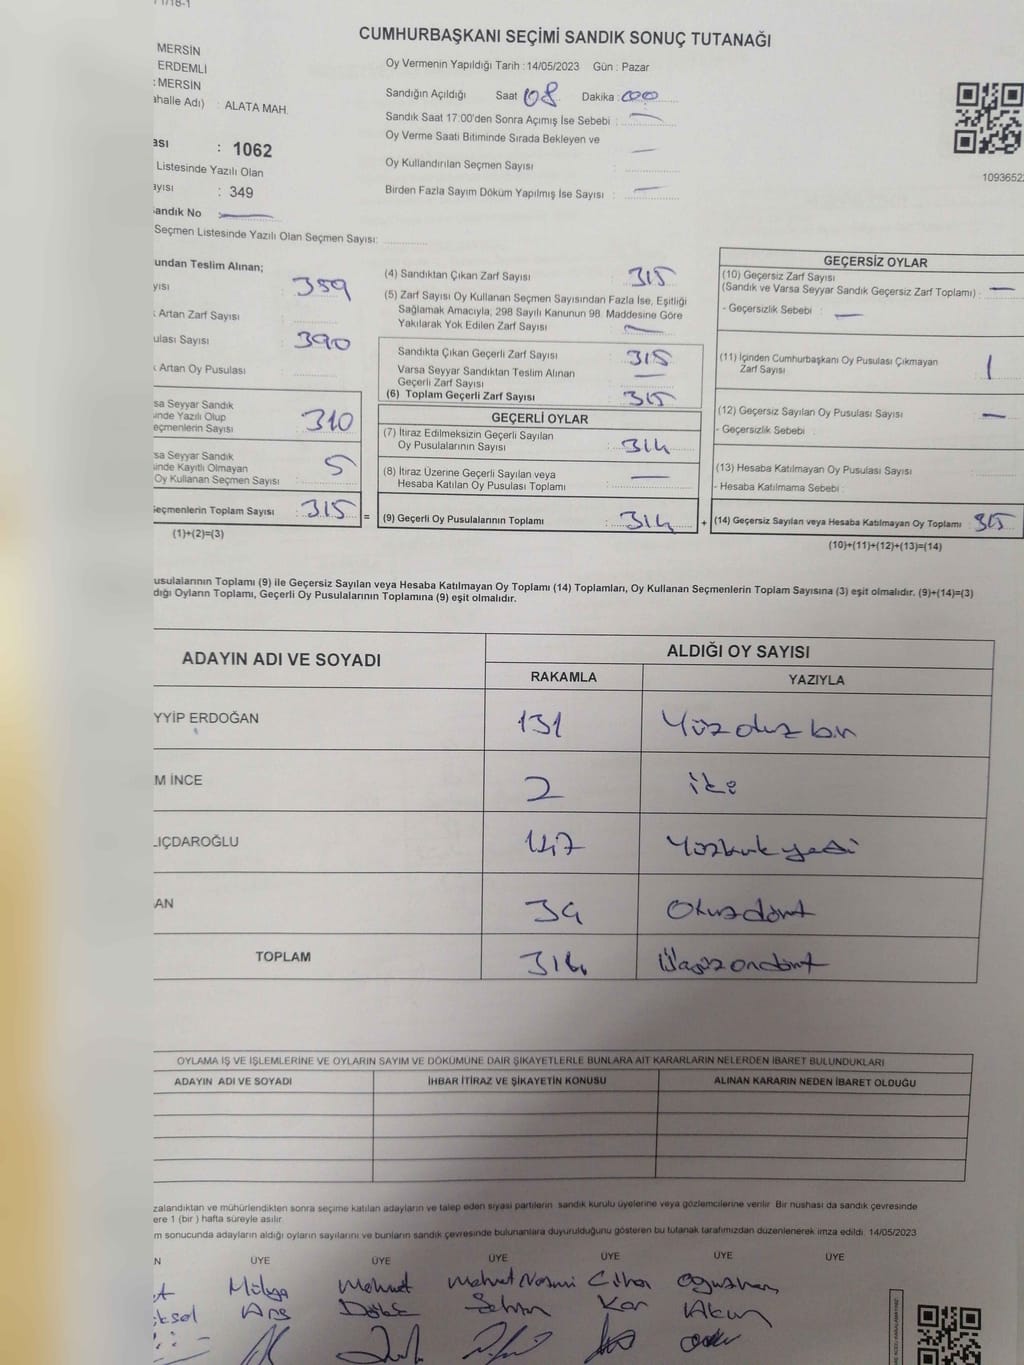 CUMHURBAŞKANI SEÇİMİ SANDIK SONUÇ TUTANAĞI
MERSİN
ERDEMLİ
: MERSİN
ahalle Adı) : ALATA MAH.
ası : 1062
Listesinde Yazılı Olan
ayısı : 349
andık No
Seçmen Listesinde Yazılı Olan Seçmen Sayısı:
Oy Vermenin Yapıldığı Tarih : 14/05/2023 Gün : Pazar
Sandığın Açıldığı Saat 08 Dakika : 00
Sandık Saat 17:00'den Sonra Açımış İse Sebebi :
Oy Verme Saati Bitiminde Sırada Bekleyen ve
Oy Kullandırılan Seçmen Sayısı
Birden Fazla Sayım Döküm Yapılmış İse Sayısı :
1093652
undan Teslim Alınan;
yısı : 359
Artan Zarf Sayısı
ulası Sayısı : 390
Artan Oy Pusulası
sa Seyyar Sandık
inde Yazılı Olup
eçmenlerin Sayısı 310
sa Seyyar Sandık
inde Kayıtlı Olmayan
Oy Kullanan Seçmen Sayısı : 5
eçmenlerin Toplam Sayısı : 315 =
(1)+(2)=(3)
(4) Sandıktan Çıkan Zarf Sayısı : 315
(5) Zarf Sayısı Oy Kullanan Seçmen Sayısından Fazla İse, Eşitliği
Sağlamak Amacıyla, 298 Sayılı Kanunun 98. Maddesine Göre
Yakılarak Yok Edilen Zarf Sayısı
Sandıkta Çıkan Geçerli Zarf Sayısı 315
Varsa Seyyar Sandıktan Teslim Alınan
Geçerli Zarf Sayısı
(6) Toplam Geçerli Zarf Sayısı 315
GEÇERLİ OYLAR
(7) İtiraz Edilmeksizin Geçerli Sayılan
Oy Pusulalarının Sayısı : 314
(8) İtiraz Üzerine Geçerli Sayılan veya
Hesaba Katılan Oy Pusulası Toplamı :
(9) Geçerli Oy Pusulalarının Toplamı : 314 +
GEÇERSİZ OYLAR
(10) Geçersiz Zarf Sayısı
(Sandık ve Varsa Seyyar Sandık Geçersiz Zarf Toplamı) :
- Geçersizlik Sebebi :
(11) İçinden Cumhurbaşkanı Oy Pusulası Çıkmayan
Zarf Sayısı 1
(12) Geçersiz Sayılan Oy Pusulası Sayısı :
- Geçersizlik Sebebi :
(13) Hesaba Katılmayan Oy Pusulası Sayısı
- Hesaba Katılmama Sebebi :
(14) Geçersiz Sayılan veya Hesaba Katılmayan Oy Toplamı : 315
(10)+(11)+(12)+(13)=(14)
usulalarının Toplamı (9) ile Geçersiz Sayılan veya Hesaba Katılmayan Oy Toplamı (14) Toplamları, Oy Kullanan Seçmenlerin Toplam Sayısına (3) eşit olmalıdır. (9)+(14)=(3)
dığı Oyların Toplamı, Geçerli Oy Pusulalarının Toplamına (9) eşit olmalıdır.
ADAYIN ADI VE SOYADI
ALDIĞI OY SAYISI
RAKAMLA YAZIYLA
YYİP ERDOĞAN 131 Yüzotuzbir
M İNCE 2 iki
LIÇDAROĞLU 147 Yüzkırkyedi
AN 34 Otuzdört
TOPLAM 314 Üçyüzondört
OYLAMA İŞ VE İŞLEMLERİNE VE OYLARIN SAYIM VE DÖKÜMÜNE DAİR ŞİKAYETLERLE BUNLARA AİT KARARLARIN NELERDEN İBARET BULUNDUKLARI
ADAYIN ADI VE SOYADI İHBAR İTİRAZ VE ŞİKAYETİN KONUSU ALINAN KARARIN NEDEN İBARET OLDUĞU
zalandıktan ve mühürlendikten sonra seçime katılan adayların ve talep eden siyasi partilerin sandık kurulu üyelerine veya gözlemcilerine verilir. Bir nushası da sandık çevresinde
ere 1 (bir ) hafta süreyle asılır.
m sonucunda adayların aldığı oyların sayılarını ve bunların sandık çevresinde bulunanlara duyurulduğunu gösteren bu tutanak tarafımızdan düzenlenerek imza edildi. 14/05/2023
N ÜYE ÜYE ÜYE ÜYE ÜYE ÜYE
Mehmet Cihan Oğuzhan
Akın